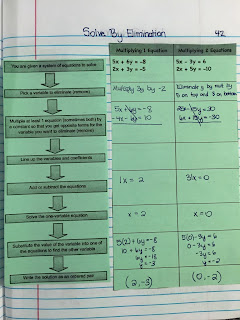 Solve By Elimination 42
Multiplying 1 Equation
Multiplying 2 Equations
You are given a system of equations to solve
5x + 6y = -8
2x + 3y = -5
5x - 3y = 6
2x + 5y = -10
Pick a variable to eliminate (remove)
Multiply 3y by -2
Eliminate y by mult by
5 on top and 3 on bottom
Multiply at least 1 equation (sometimes both) by
a constant so that you get opposite terms for the
variable you want to eliminate (remove)
5x + 6y = -8
-4x - 6y = 10
25x - 15y = 30
6x + 15y = -30
Line up the variables and coefficients
Add or subtract the equations
1x = 2
31x = 0
Solve the one-variable equation
x = 2
x = 0
Substitute the value of the variable into one of
the equations to find the other variable
5(2) + 6y = -8
10 + 6y = -8
6y = -18
y = -3
5(0) - 3y = 6
0 - 3y = 6
-3y = 6
y = -2
Write the solution as an ordered pair
(2, -3)
(0, -2)